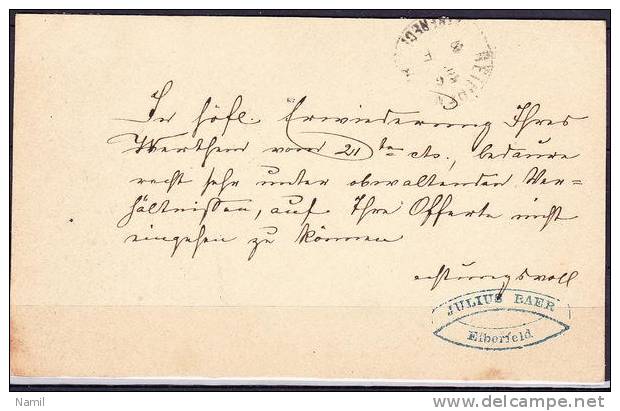 In höfl. Erwiederung Ihres
Werthem vom 21ten cts., bedaure
recht sehr unter obwaltenden Ver=
hältnissen, auf Ihre Offerte nicht
eingehen zu können
achtungsvoll
JULIUS BAER
Elberfeld
Namil
delcampe.net